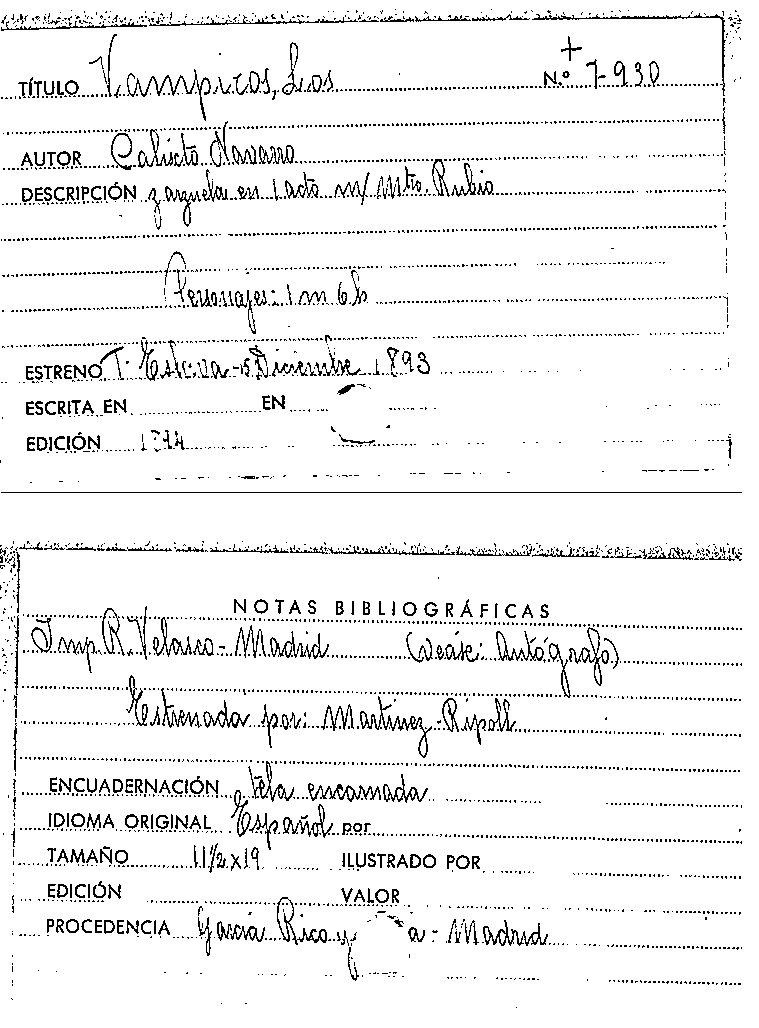 +
TÍTULO Vampiros, Los N.º 7-930
AUTOR Calixto Navarro
DESCRIPCIÓN zarzuela en 1 acto m/ Mtro. Rubio
Personajes: 1 m 6 h
ESTRENO T. Eslava - 15 Diciembre 1893
ESCRITA EN EN
EDICIÓN
NOTAS BIBLIOGRÁFICAS
Imp. R. Velasco - Madrid (veáse: Autógrafo)
Estrenada por: Martinez - Ripoll
ENCUADERNACIÓN tela encarnada
IDIOMA ORIGINAL Español por
TAMAÑO 11 1/2 x 19 ILUSTRADO POR
EDICIÓN VALOR
PROCEDENCIA García Rico y a - Madrid